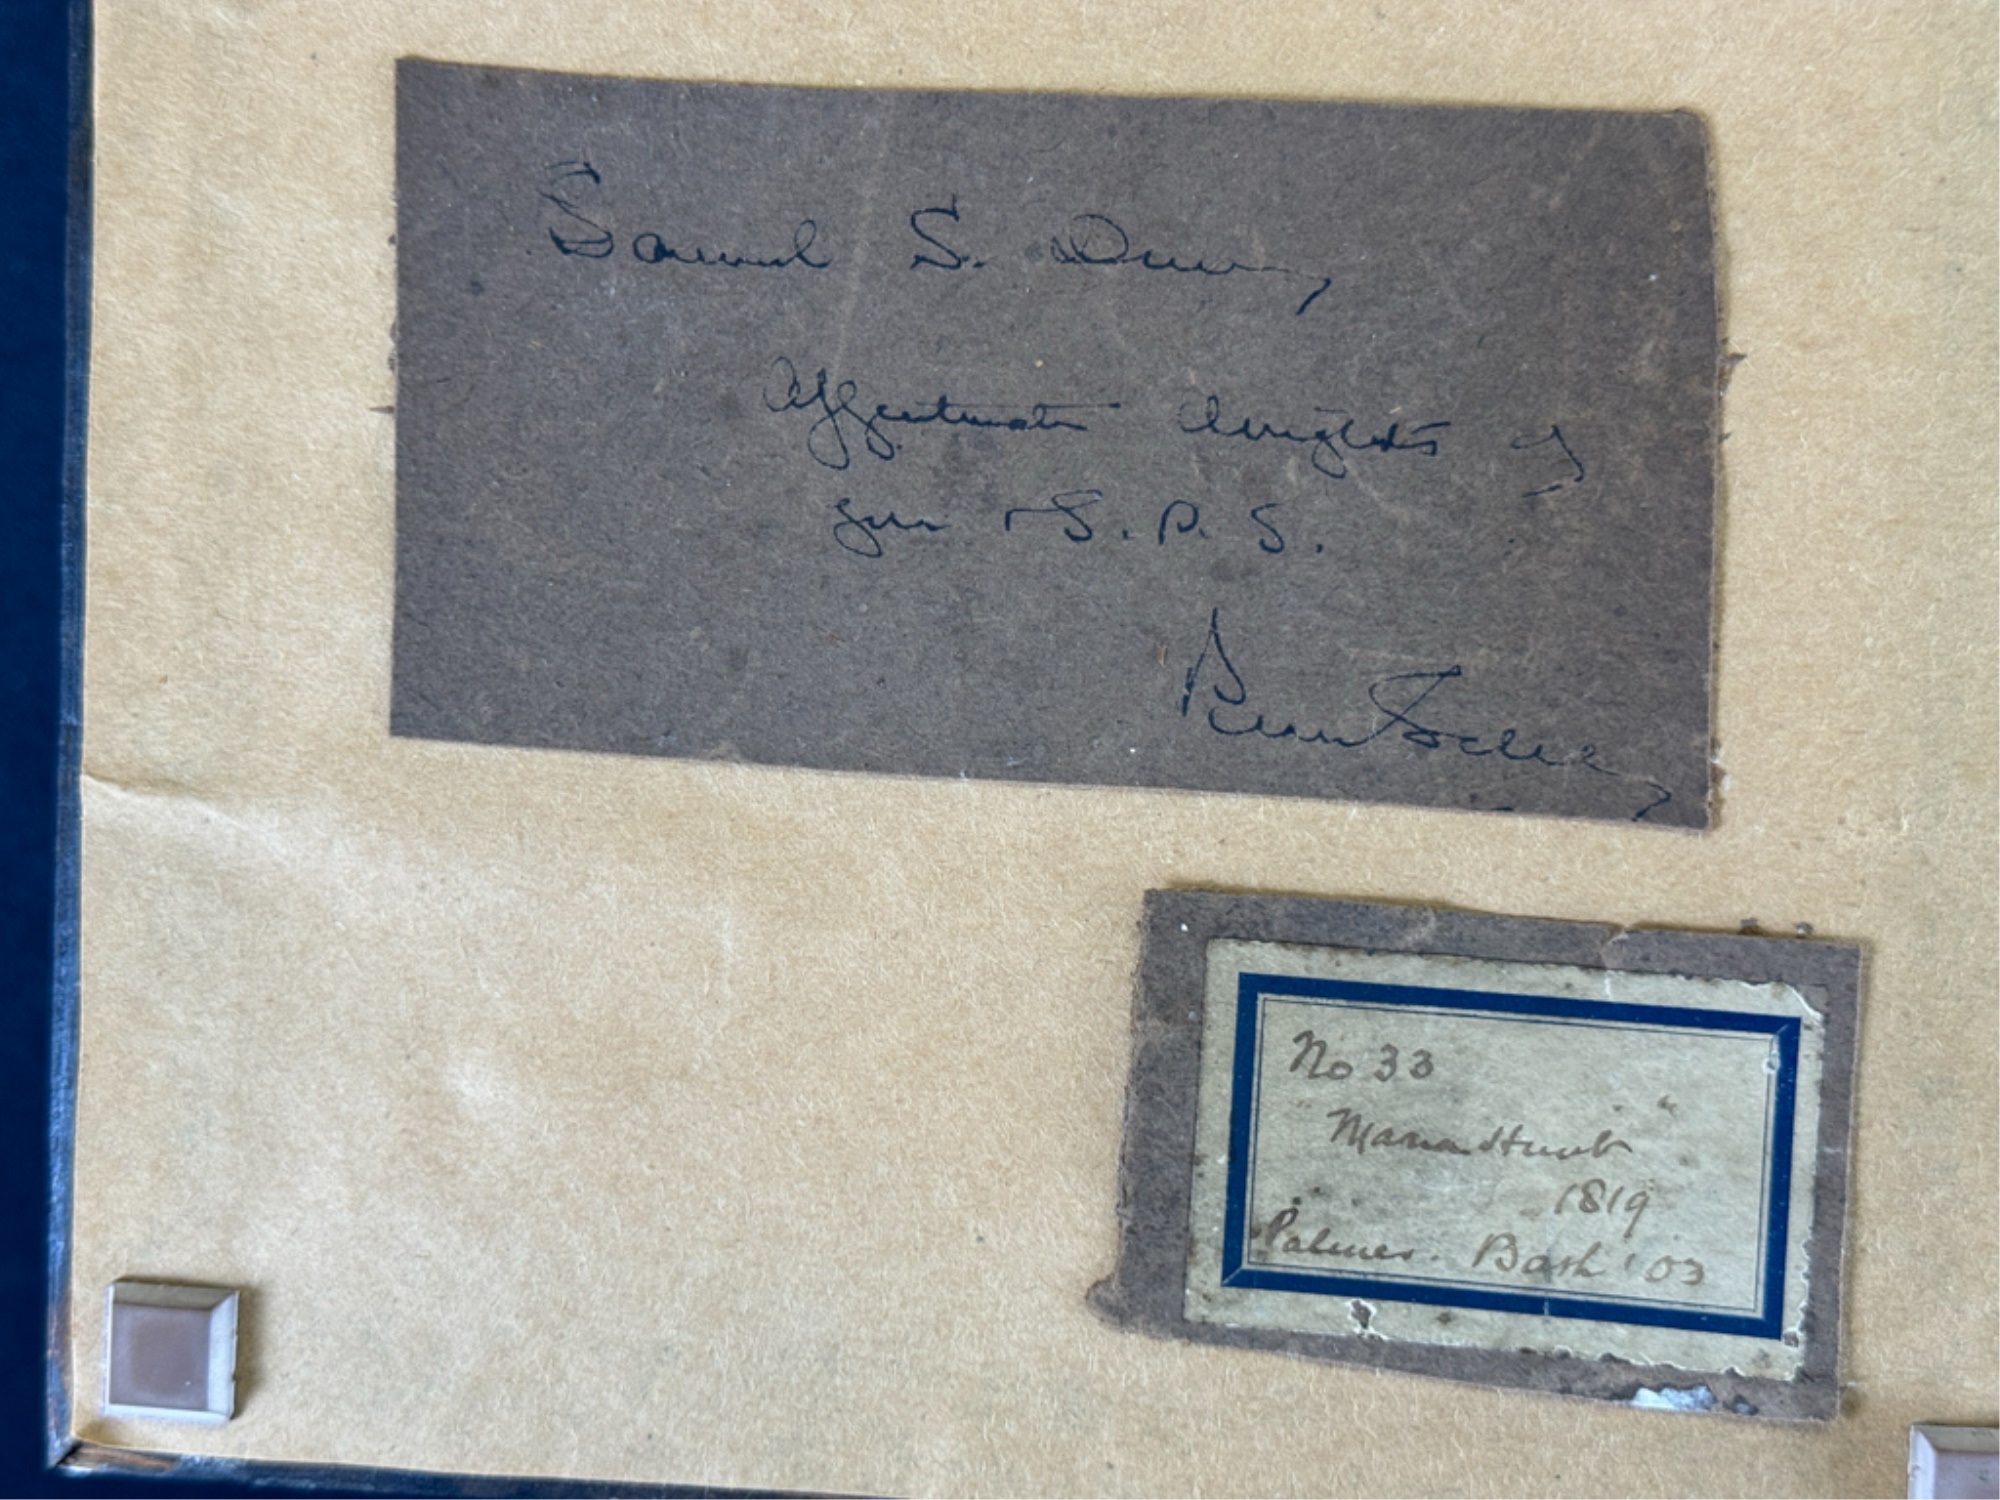 Samuel S. Drury
Affectionate thoughts of
you & S. P. S.
No 33
"Maria Hunt"
1819
Palmer. Bash '03